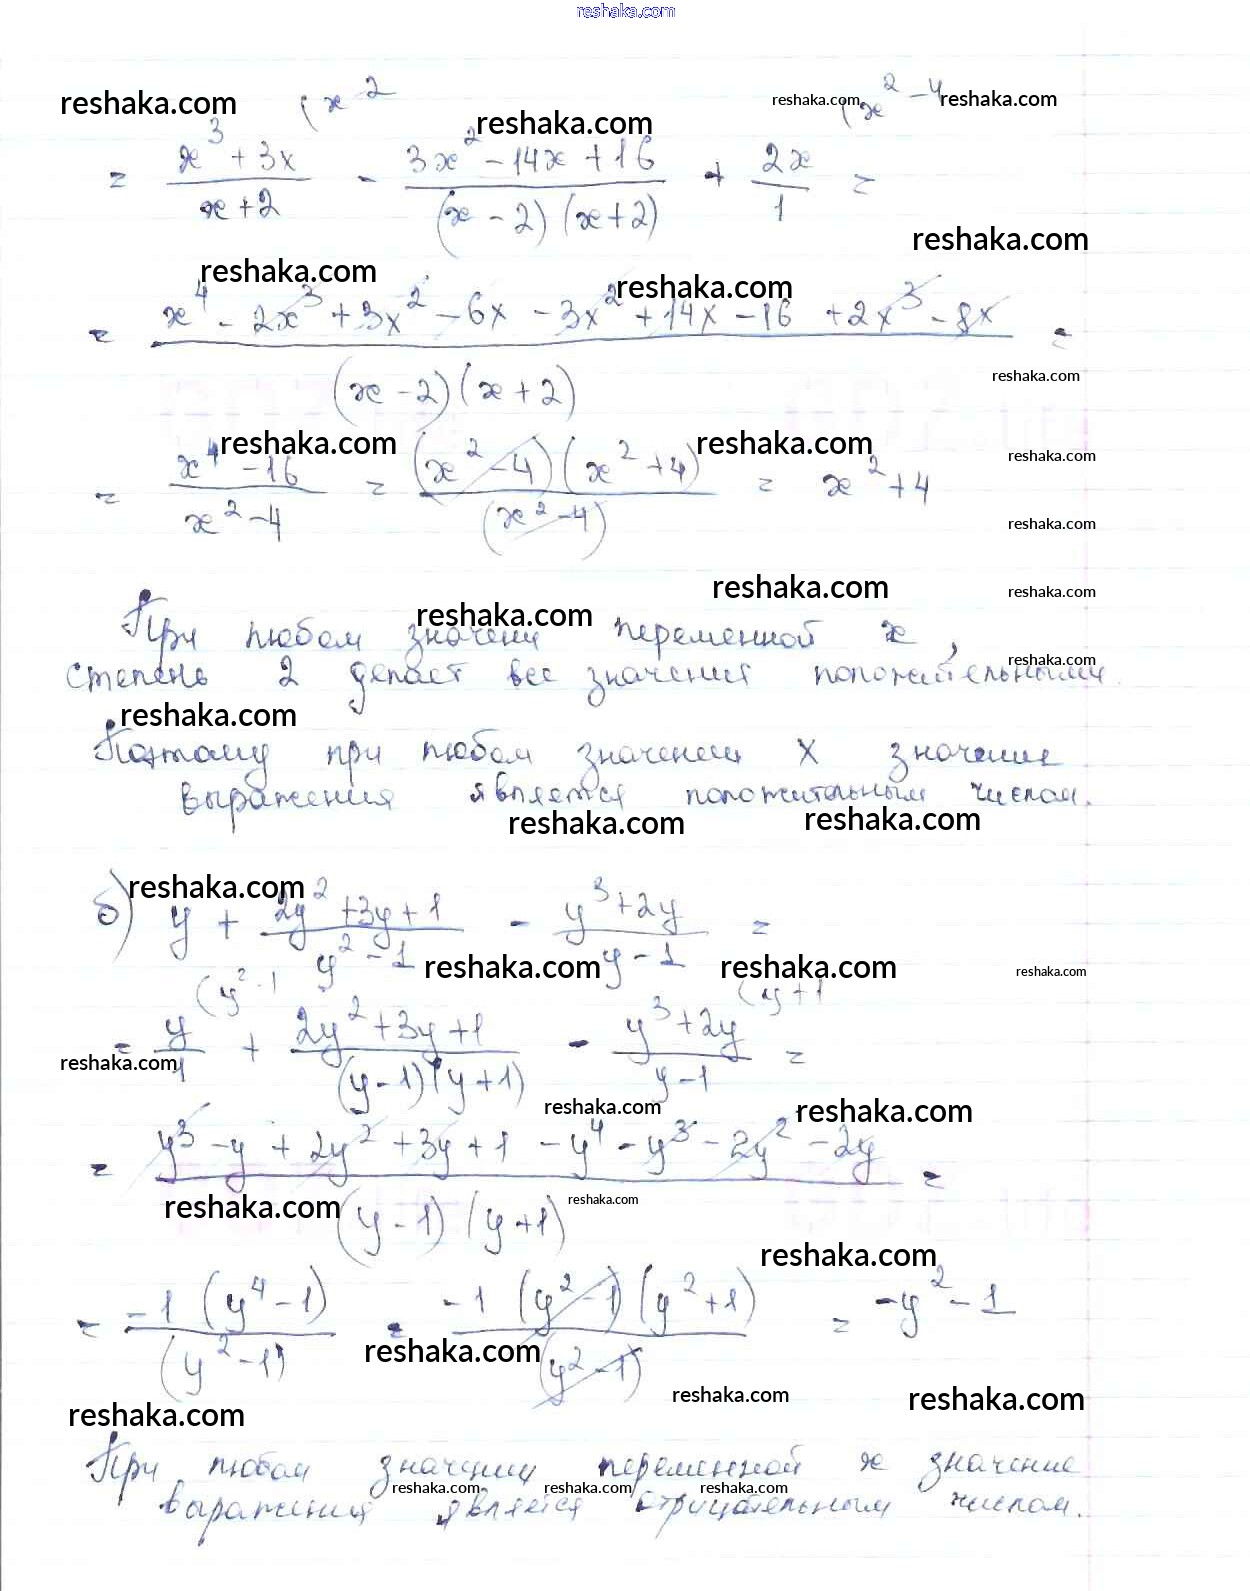 reshaka.com
reshaka.com (x 2 reshaka.com reshaka.com (x² - 4 reshaka.com
= x³ + 3x / x + 2 - 3x² - 14x + 16 / (x - 2)(x + 2) + 2x / 1 =
reshaka.com
reshaka.com reshaka.com
= x⁴ - 2x³ + 3x² - 6x - 3x² + 14x - 16 + 2x³ - 8x / (x - 2)(x + 2) =
reshaka.com
reshaka.com reshaka.com reshaka.com
= x⁴ - 16 / x² - 4 = (x² - 4)(x² + 4) / (x² - 4) = x² + 4
reshaka.com
reshaka.com reshaka.com
reshaka.com
При любом значени переменной x,
reshaka.com
степень 2 делает все значения положительными.
reshaka.com
Поэтому при любом значении x значение
выражения является положительным числом.
reshaka.com reshaka.com
reshaka.com
б) y + 2y² + 3y + 1 / y² - 1 - y³ + 2y / y - 1 =
reshaka.com reshaka.com reshaka.com
(y² - 1 (y + 1
= y / 1 + 2y² + 3y + 1 / (y - 1)(y + 1) - y³ + 2y / y - 1 =
reshaka.com
reshaka.com reshaka.com
= y³ - y + 2y² + 3y + 1 - y⁴ - y³ - 2y² - 2y / (y - 1)(y + 1) =
reshaka.com reshaka.com
reshaka.com
= -1 (y⁴ - 1) / (y² - 1) = -1 (y² - 1)(y² + 1) / (y² - 1) = -y² - 1
reshaka.com
reshaka.com reshaka.com
reshaka.com
При любом значении переменной x значение
reshaka.com reshaka.com reshaka.com
выражения является отрицательным числом.